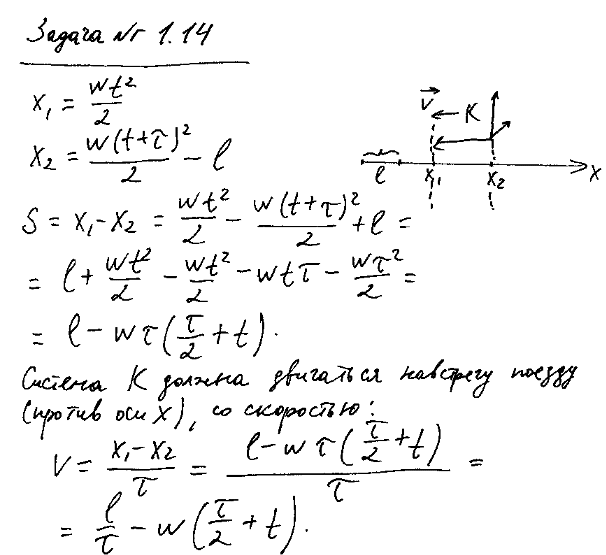 Задача № 1.14
x₁ = wt²/2
x₂ = w(t+τ)²/2 − l
S = x₁ − x₂ = wt²/2 − w(t+τ)²/2 + l =
= l + wt²/2 − wt²/2 − wtτ − wτ²/2 =
= l − wτ(τ/2 + t).
Система K должна двигаться навстречу поезду
(против оси X), со скоростью:
V = (x₁ − x₂)/τ = (l − wτ(τ/2 + t))/τ =
= l/τ − w(τ/2 + t).
V⃗
K
l
x₁
x₂
x